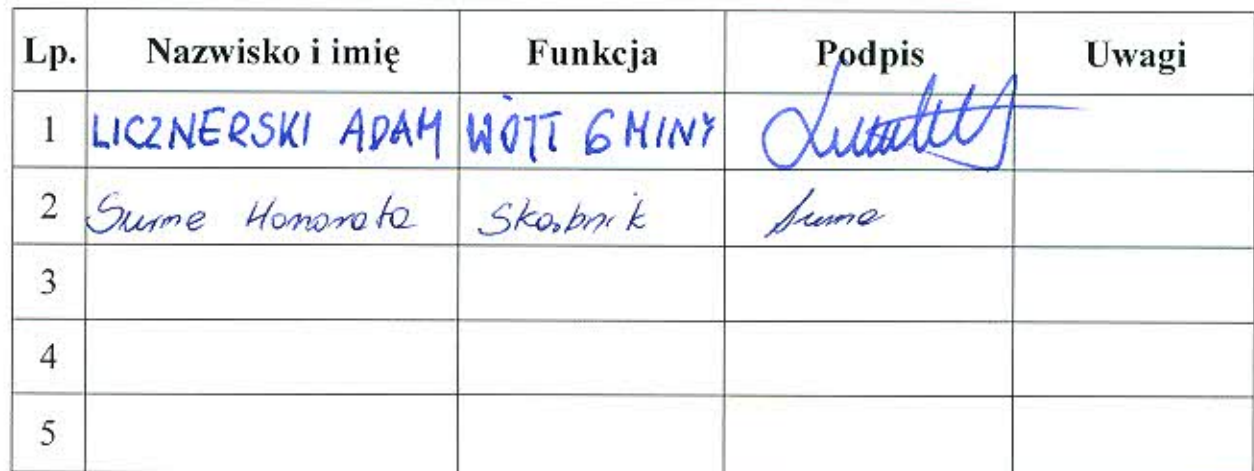 Lp. Nazwisko i imię Funkcja Podpis Uwagi
1 LICZNERSKI ADAM WÓJT GMINY
2 Surma Honorata Skarbnik Surma
3
4
5